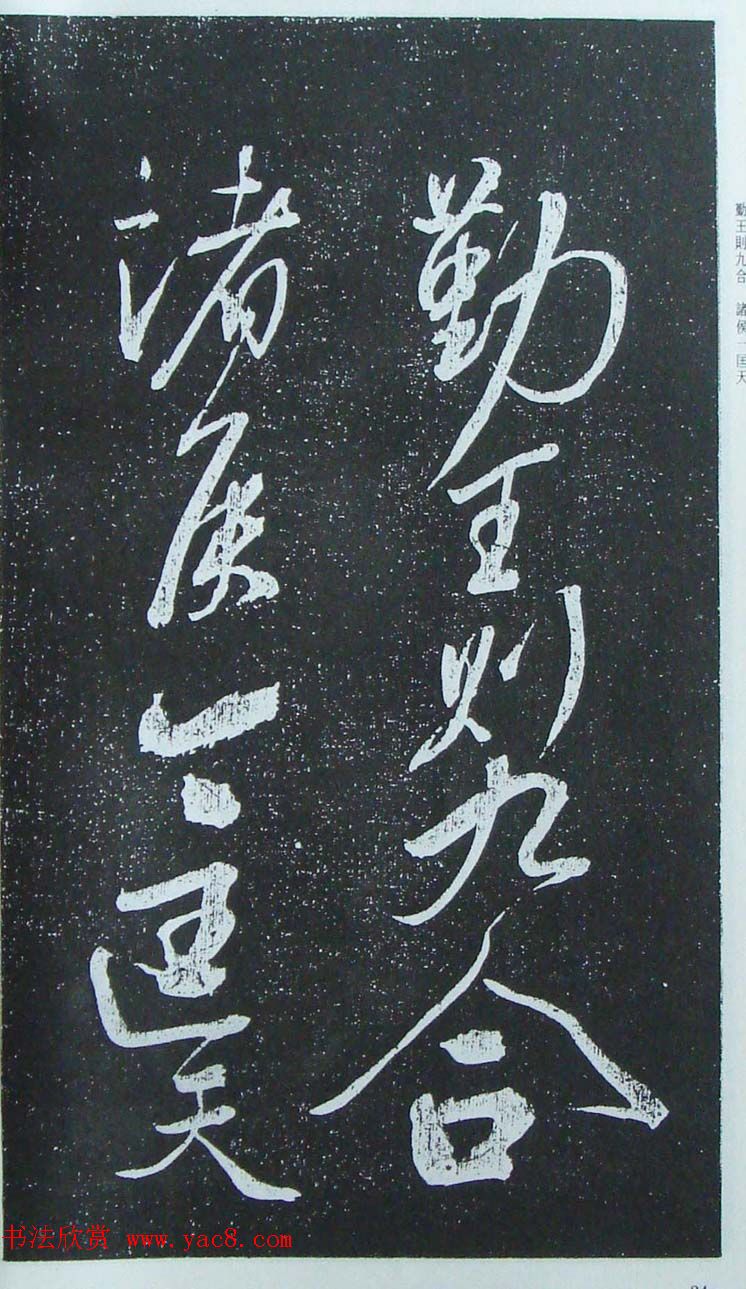 勤王則九合
諸侯一匡天
勤王則九合　諸侯一匡天
书法欣赏 www.yac8.com